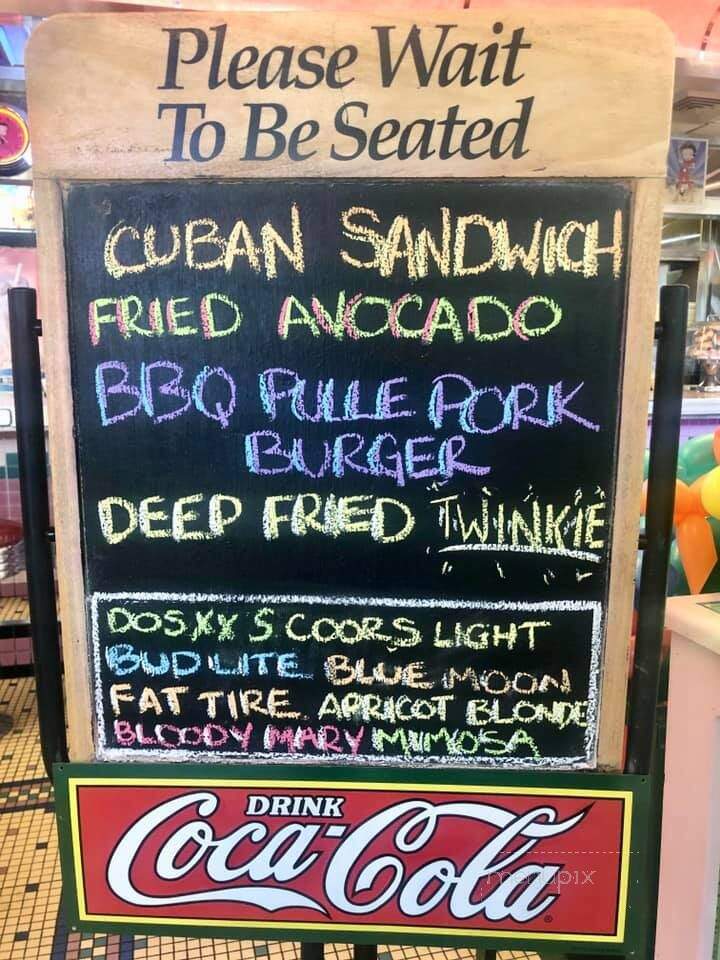 Please Wait
To Be Seated
CUBAN SANDWICH
FRIED AVOCADO
BBQ PULLE PORK
BURGER
DEEP FRIED TWINKIE
DOS XX S COORS LIGHT
BUD LITE BLUE MOON
FAT TIRE APRICOT BLONDE
BLOODY MARY MIMOSA
DRINK
Coca-Cola
menupix